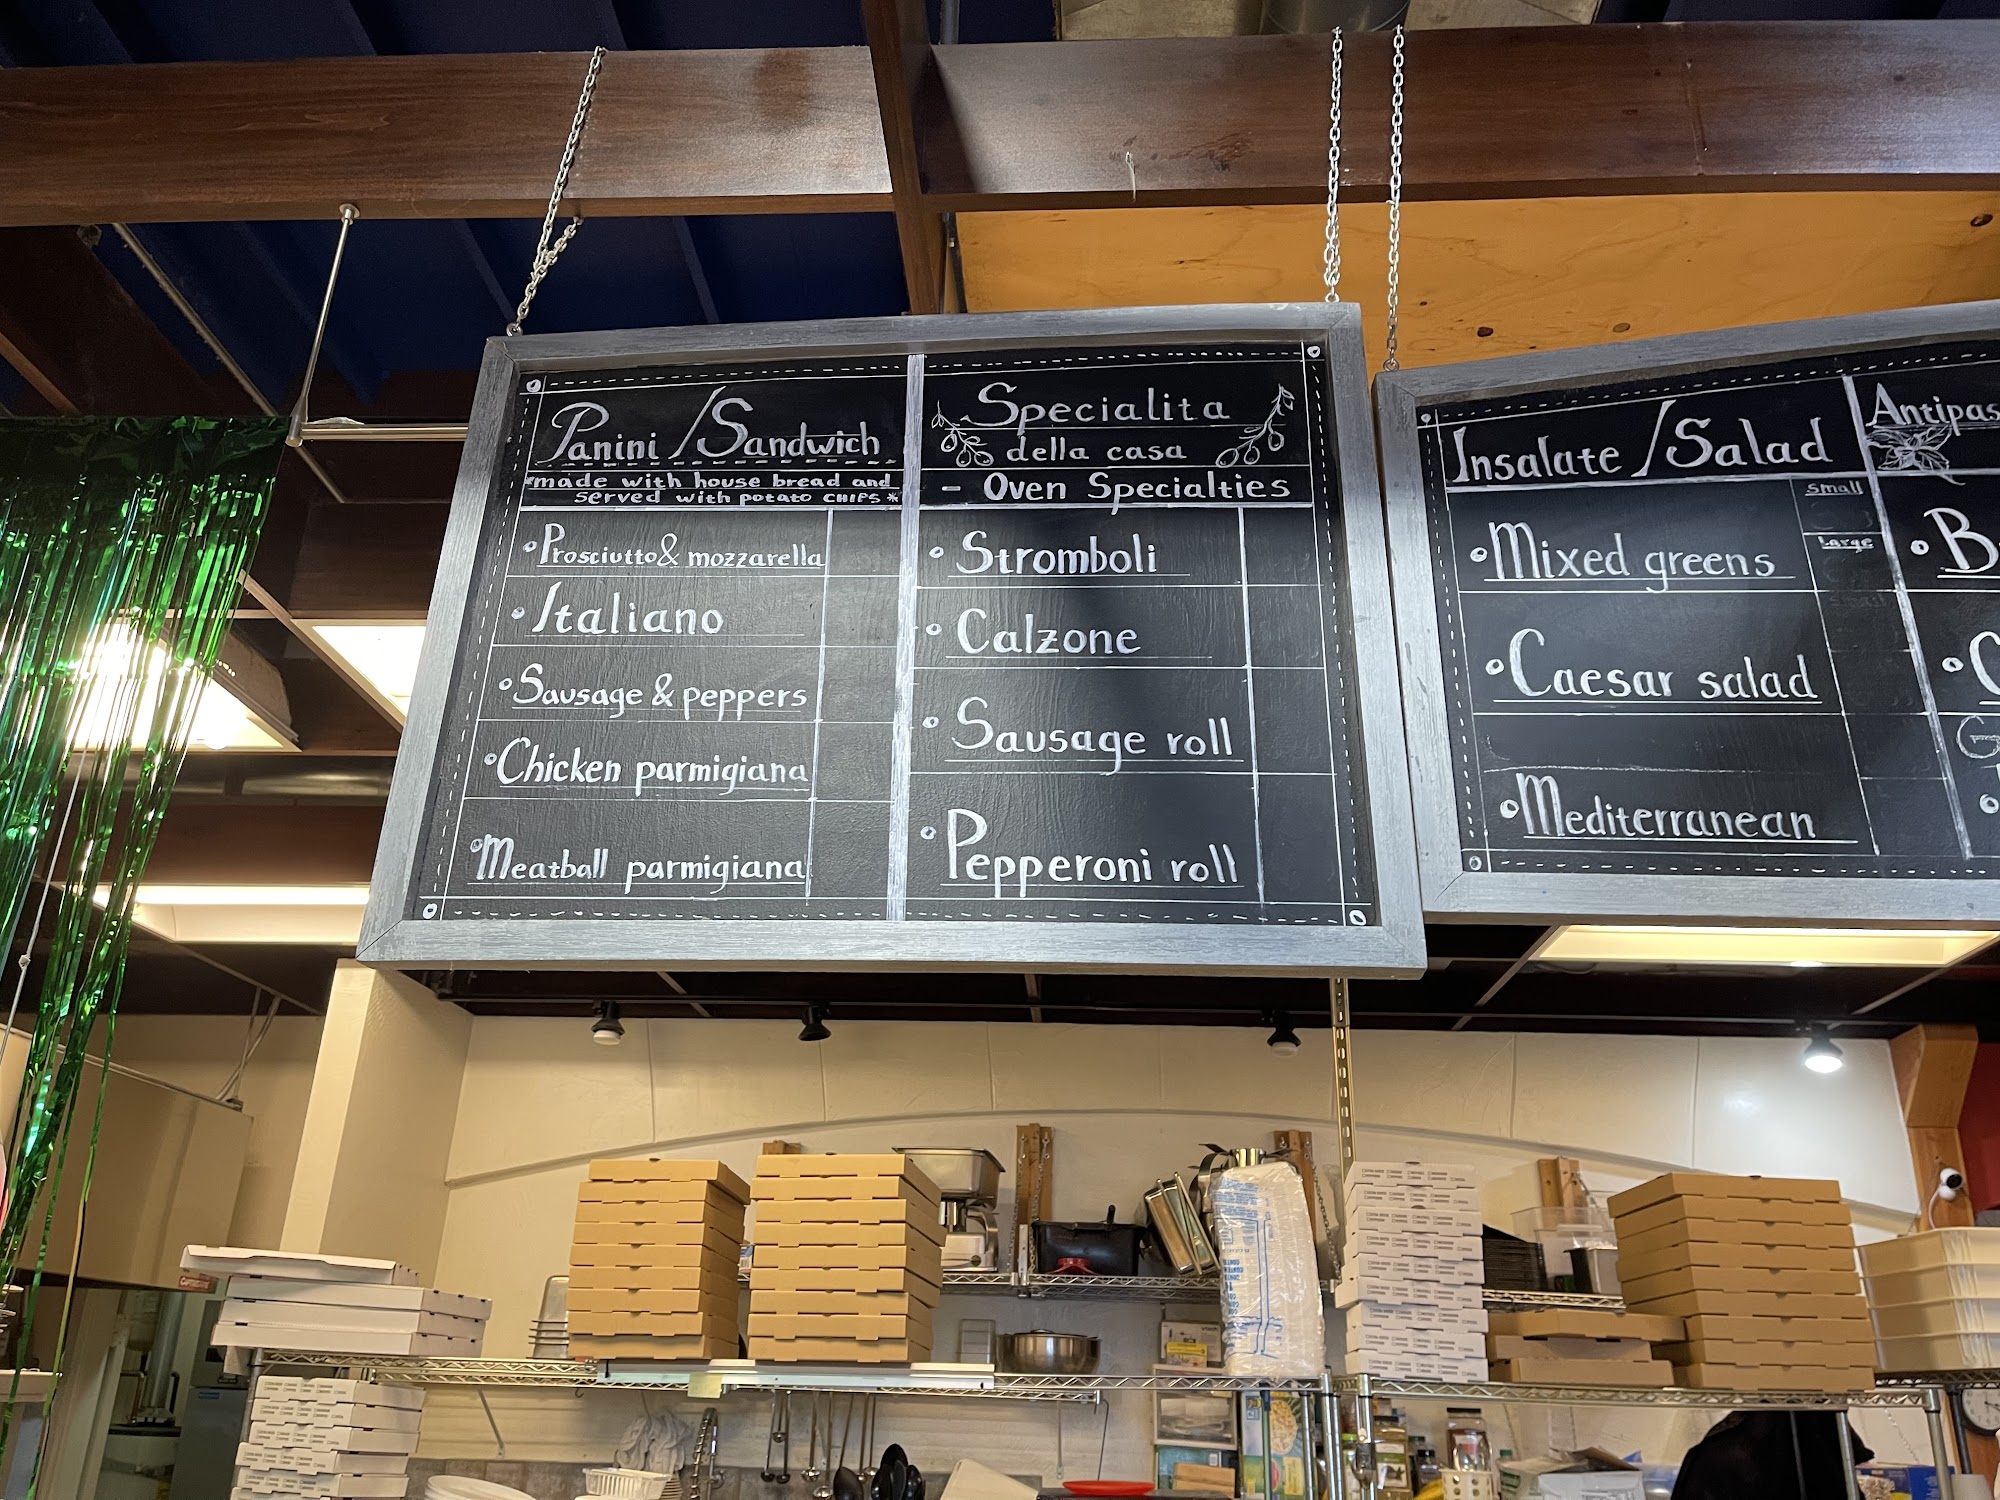 Panini / Sandwich
*made with house bread and
served with potato chips *
• Prosciutto & mozzarella
• Italiano
• Sausage & peppers
• Chicken parmigiana
• Meatball parmigiana
Specialita
della casa
- Oven Specialties
• Stromboli
• Calzone
• Sausage roll
• Pepperoni roll
Insalate / Salad
small
Large
• Mixed greens
• Caesar salad
• Mediterranean